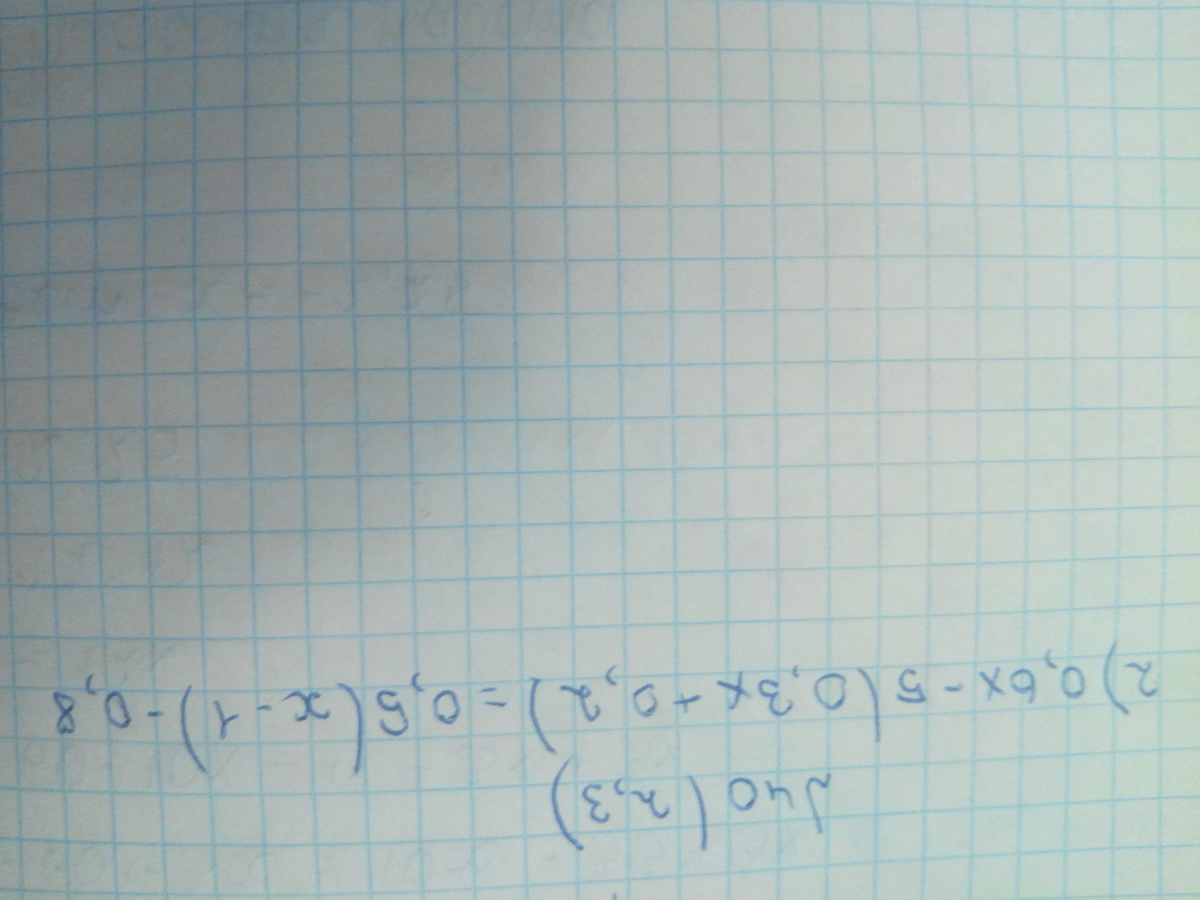 №40 (2,3)
2) 0,6x - 5 (0,3x + 0,2) = 0,5 (x - 1) - 0,8